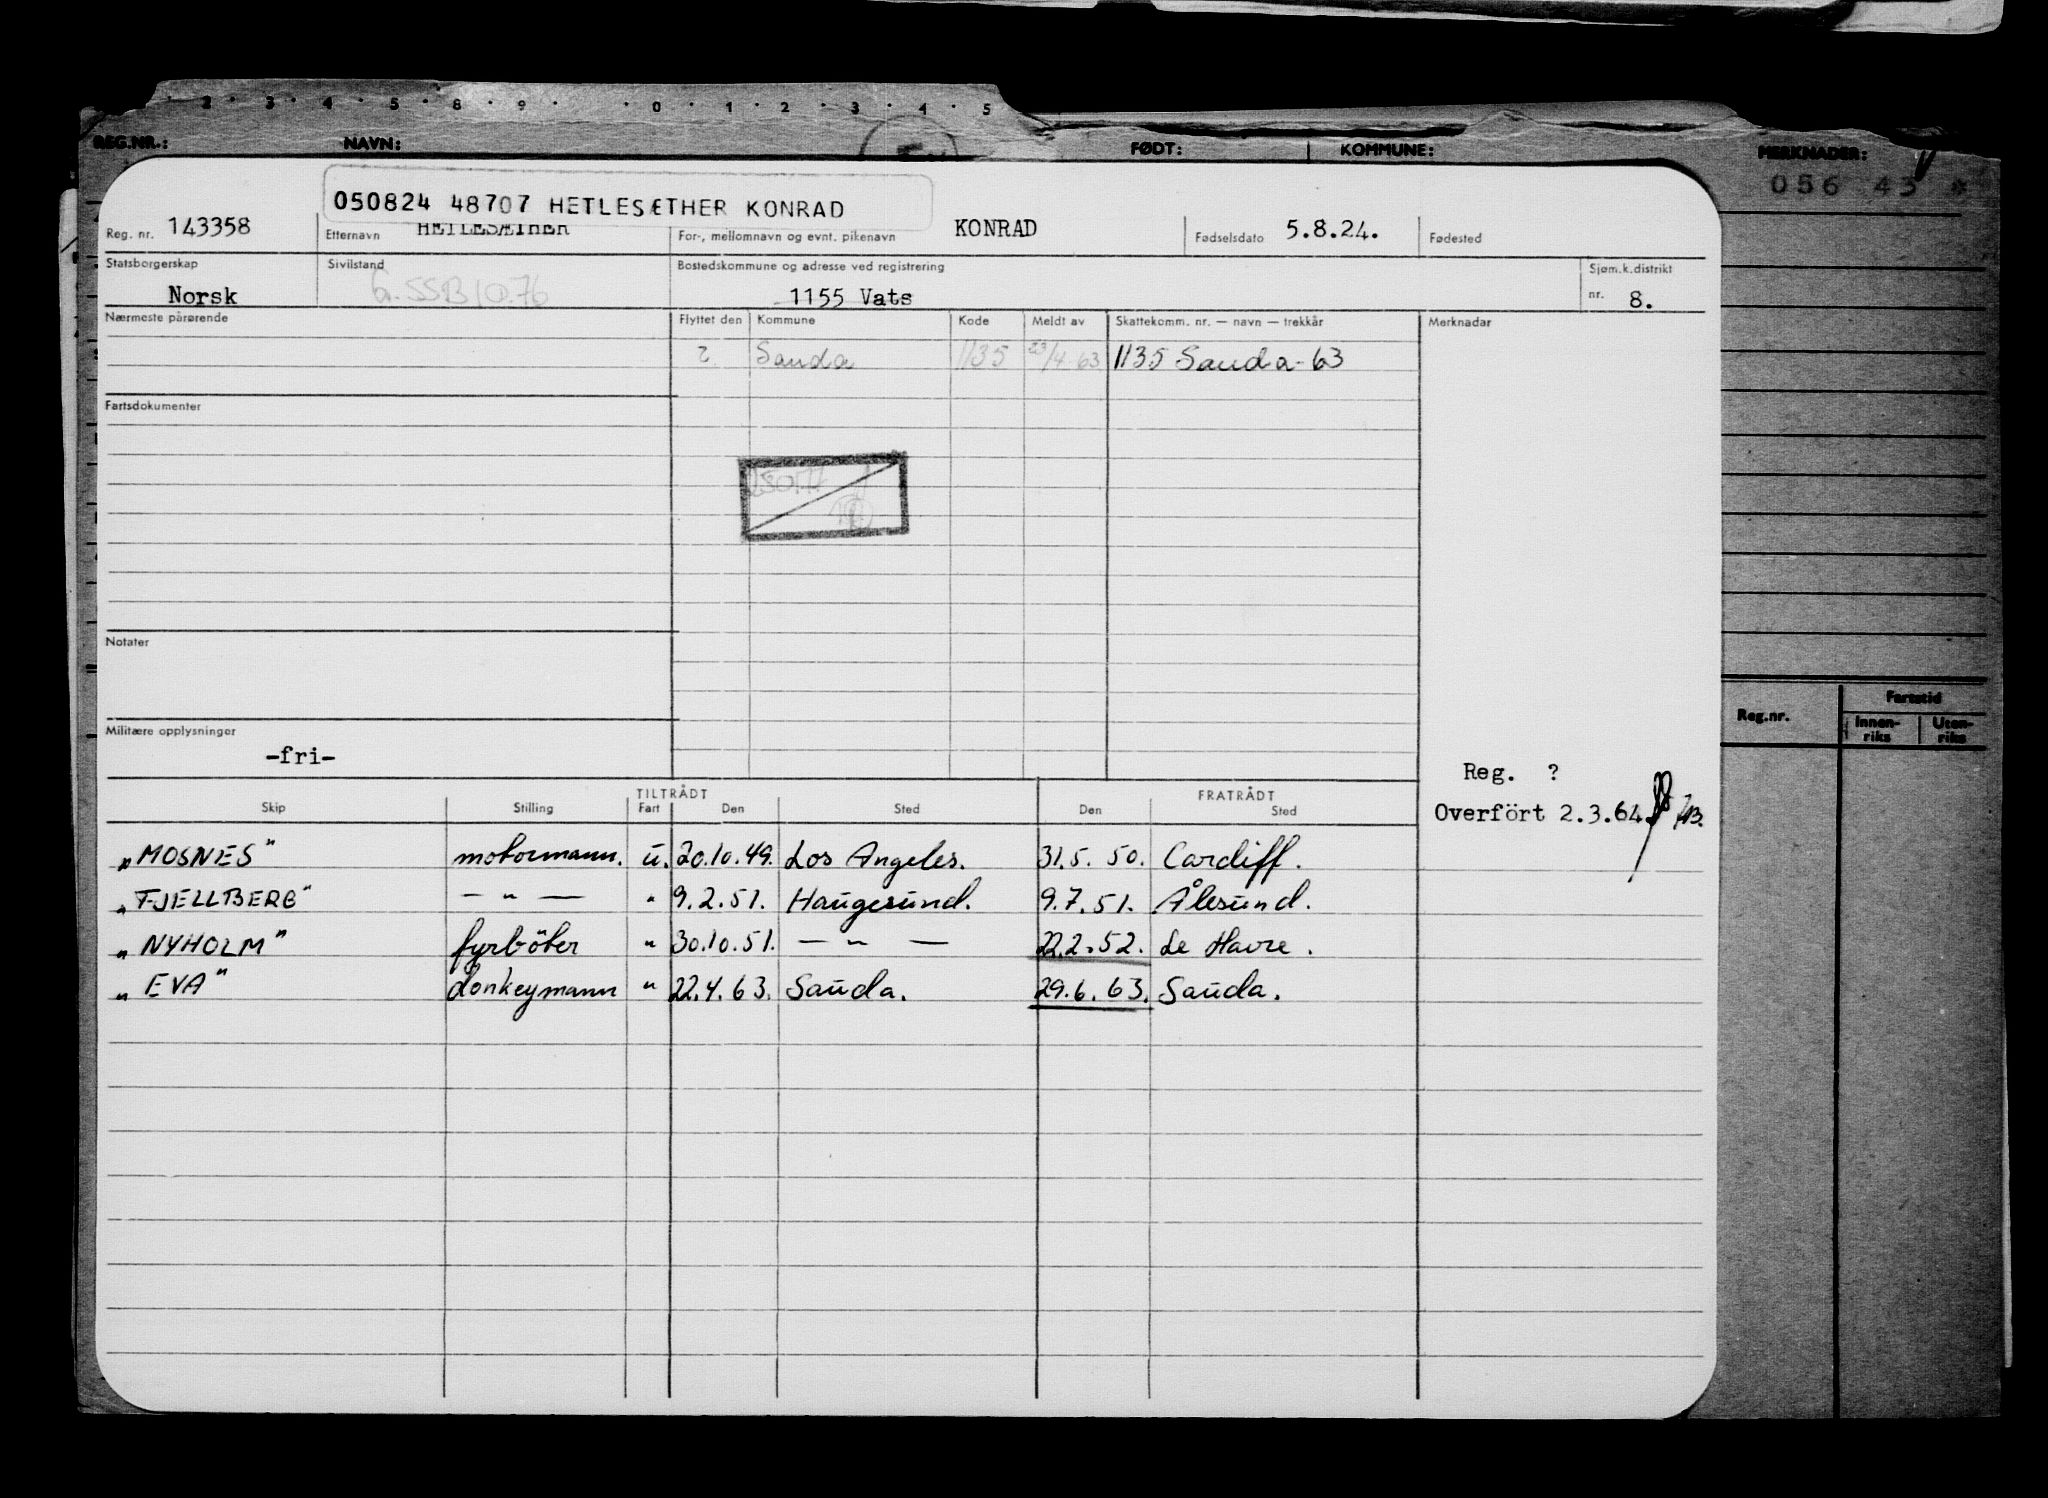 2 · 3 · 4 · 5 · 8 · 9 · · 0 · 1 · 2 · 3 · 4 · 5
REG.NR.: NAVN: FØDT: KOMMUNE: MERKNADER:
056 43 *
050824 48707 HETLESÆTHER KONRAD
Reg. nr. 143358 Etternavn HETLESÆTHER For-, mellomnavn og evnt. pikenavn KONRAD Fødselsdato 5.8.24. Fødested
Statsborgerskap Sivilstand Bostedskommune og adresse ved registrering Sjøm.k.distrikt
Norsk 1155 Vats nr. 8.
Nærmeste pårørende Flyttet den Kommune Kode Meldt av Skattekomm. nr. — navn — trekkår Merknadar
? Sauda 1135 23/4-63 1135 Sauda-63
Fartsdokumenter
Notater
Militære opplysninger
-fri-
Reg. ?
Overfört 2.3.64
TILTRÅDT FRATRÅDT
Skip Stilling Fart Den Sted Den Sted
„MOSNES" motormann. u. 20.10.49. Los Angeles. 31.5.50. Cardiff.
„FJELLBERG" — „ — " 9.2.51. Haugesund. 9.7.51. Ålesund.
„NYHOLM" fyrböter " 30.10.51. — „ — 22.2.52. Le Havre.
„EVA" donkeymann " 22.4.63. Sauda. 29.6.63. Sauda.
Reg.nr. Fartstid
Innen-riks Uten-riks